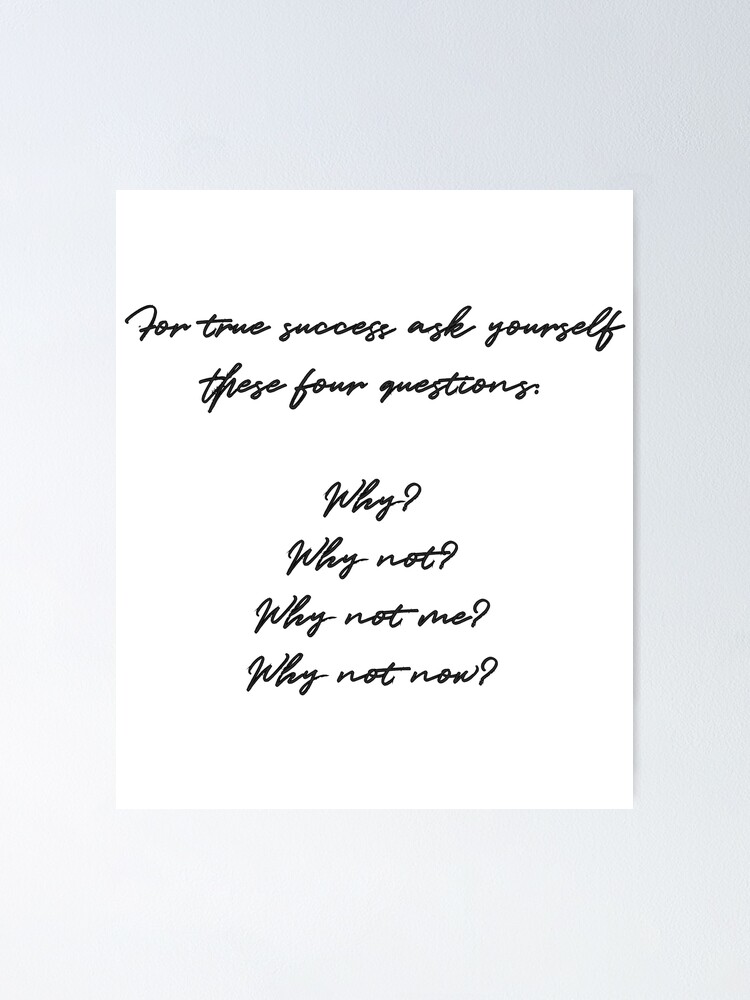 For true success ask yourself
these four questions:
Why?
Why not?
Why not me?
Why not now?